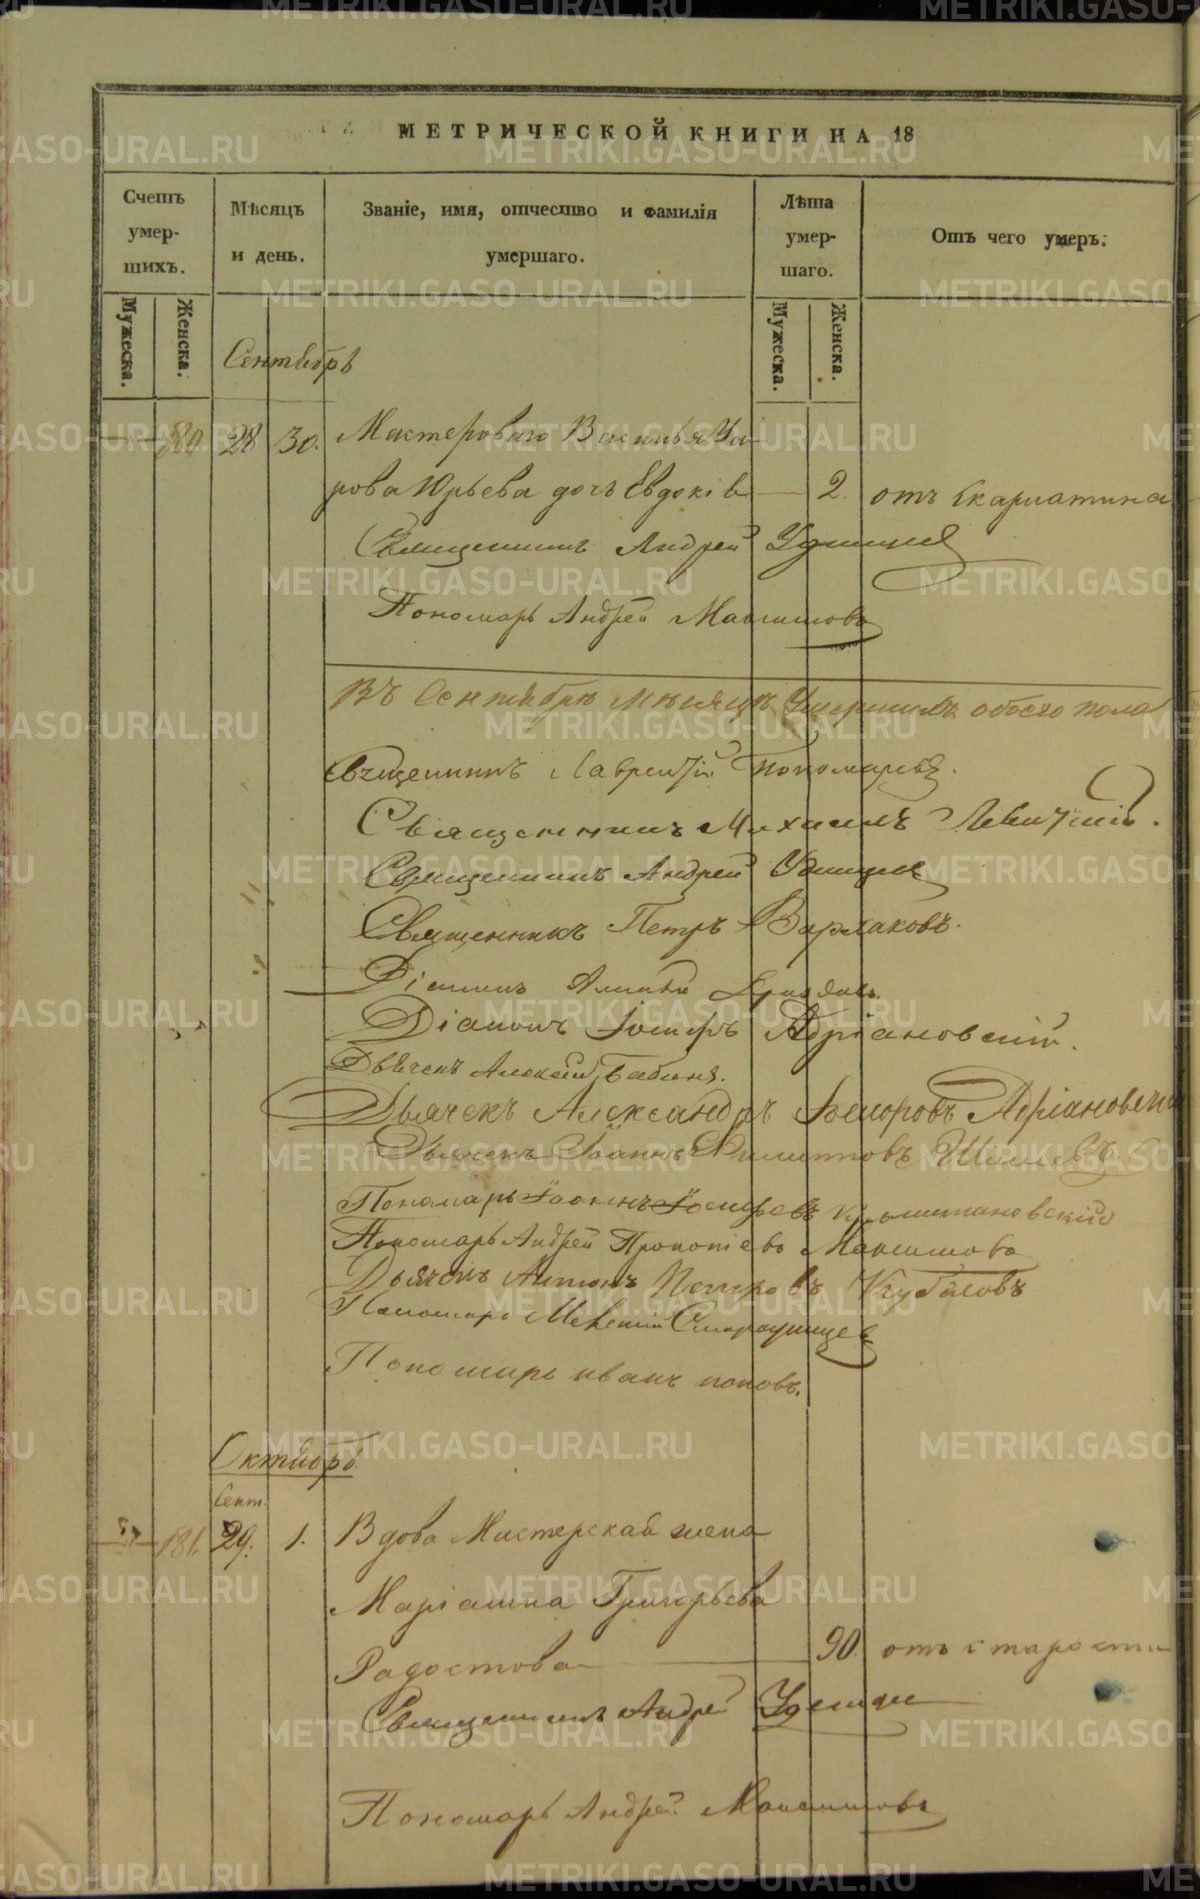 МЕТРИЧЕСКОЙ КНИГИ НА 18
Счетъ умер-шихъ.
Мѣсяцъ и день.
Званіе, имя, отчество и фамилія умершаго.
Лѣта умер-шаго.
Отъ чего умеръ.
Мужеска.
Женска.
Мужеска.
Женска.
Сентябрь
180 28 30. Мастероваго Василья Ува-
рова Юрьева дочь Евдокія — 2. отъ скарлатина
Священникъ Андрей
Пономарь Андрей Максимовъ
Въ Сентябрѣ мѣсяцѣ Умершихъ обоего пола
Священникъ Лаврентій Пономаревъ.
Священникъ Михаилъ Левитскій.
Священникъ Андрей
Священникъ Петръ Варлаковъ.
Діаконъ
Діаконъ Іосифъ Адріановскій.
Дьячекъ Алексей Бабинъ.
Дьячекъ Александръ Адріановскій
Дьячекъ Іоаннъ Филипповъ Шишевъ
Пономарь Іоаннъ Іосифовъ
Пономарь Андрей Прокопіевъ Максимовъ
Дьячекъ Антонъ Петровъ Кубасовъ
Пономарь
Пономарь иванъ поповъ.
Октябрь
Сент.
181. 29. 1. Вдова Мастерская жена
Маріанна Григорьева
Радостова — 90. отъ старости
Священникъ Андрей
Пономарь Андрей Максимовъ
METRIKI.GASO-URAL.RU